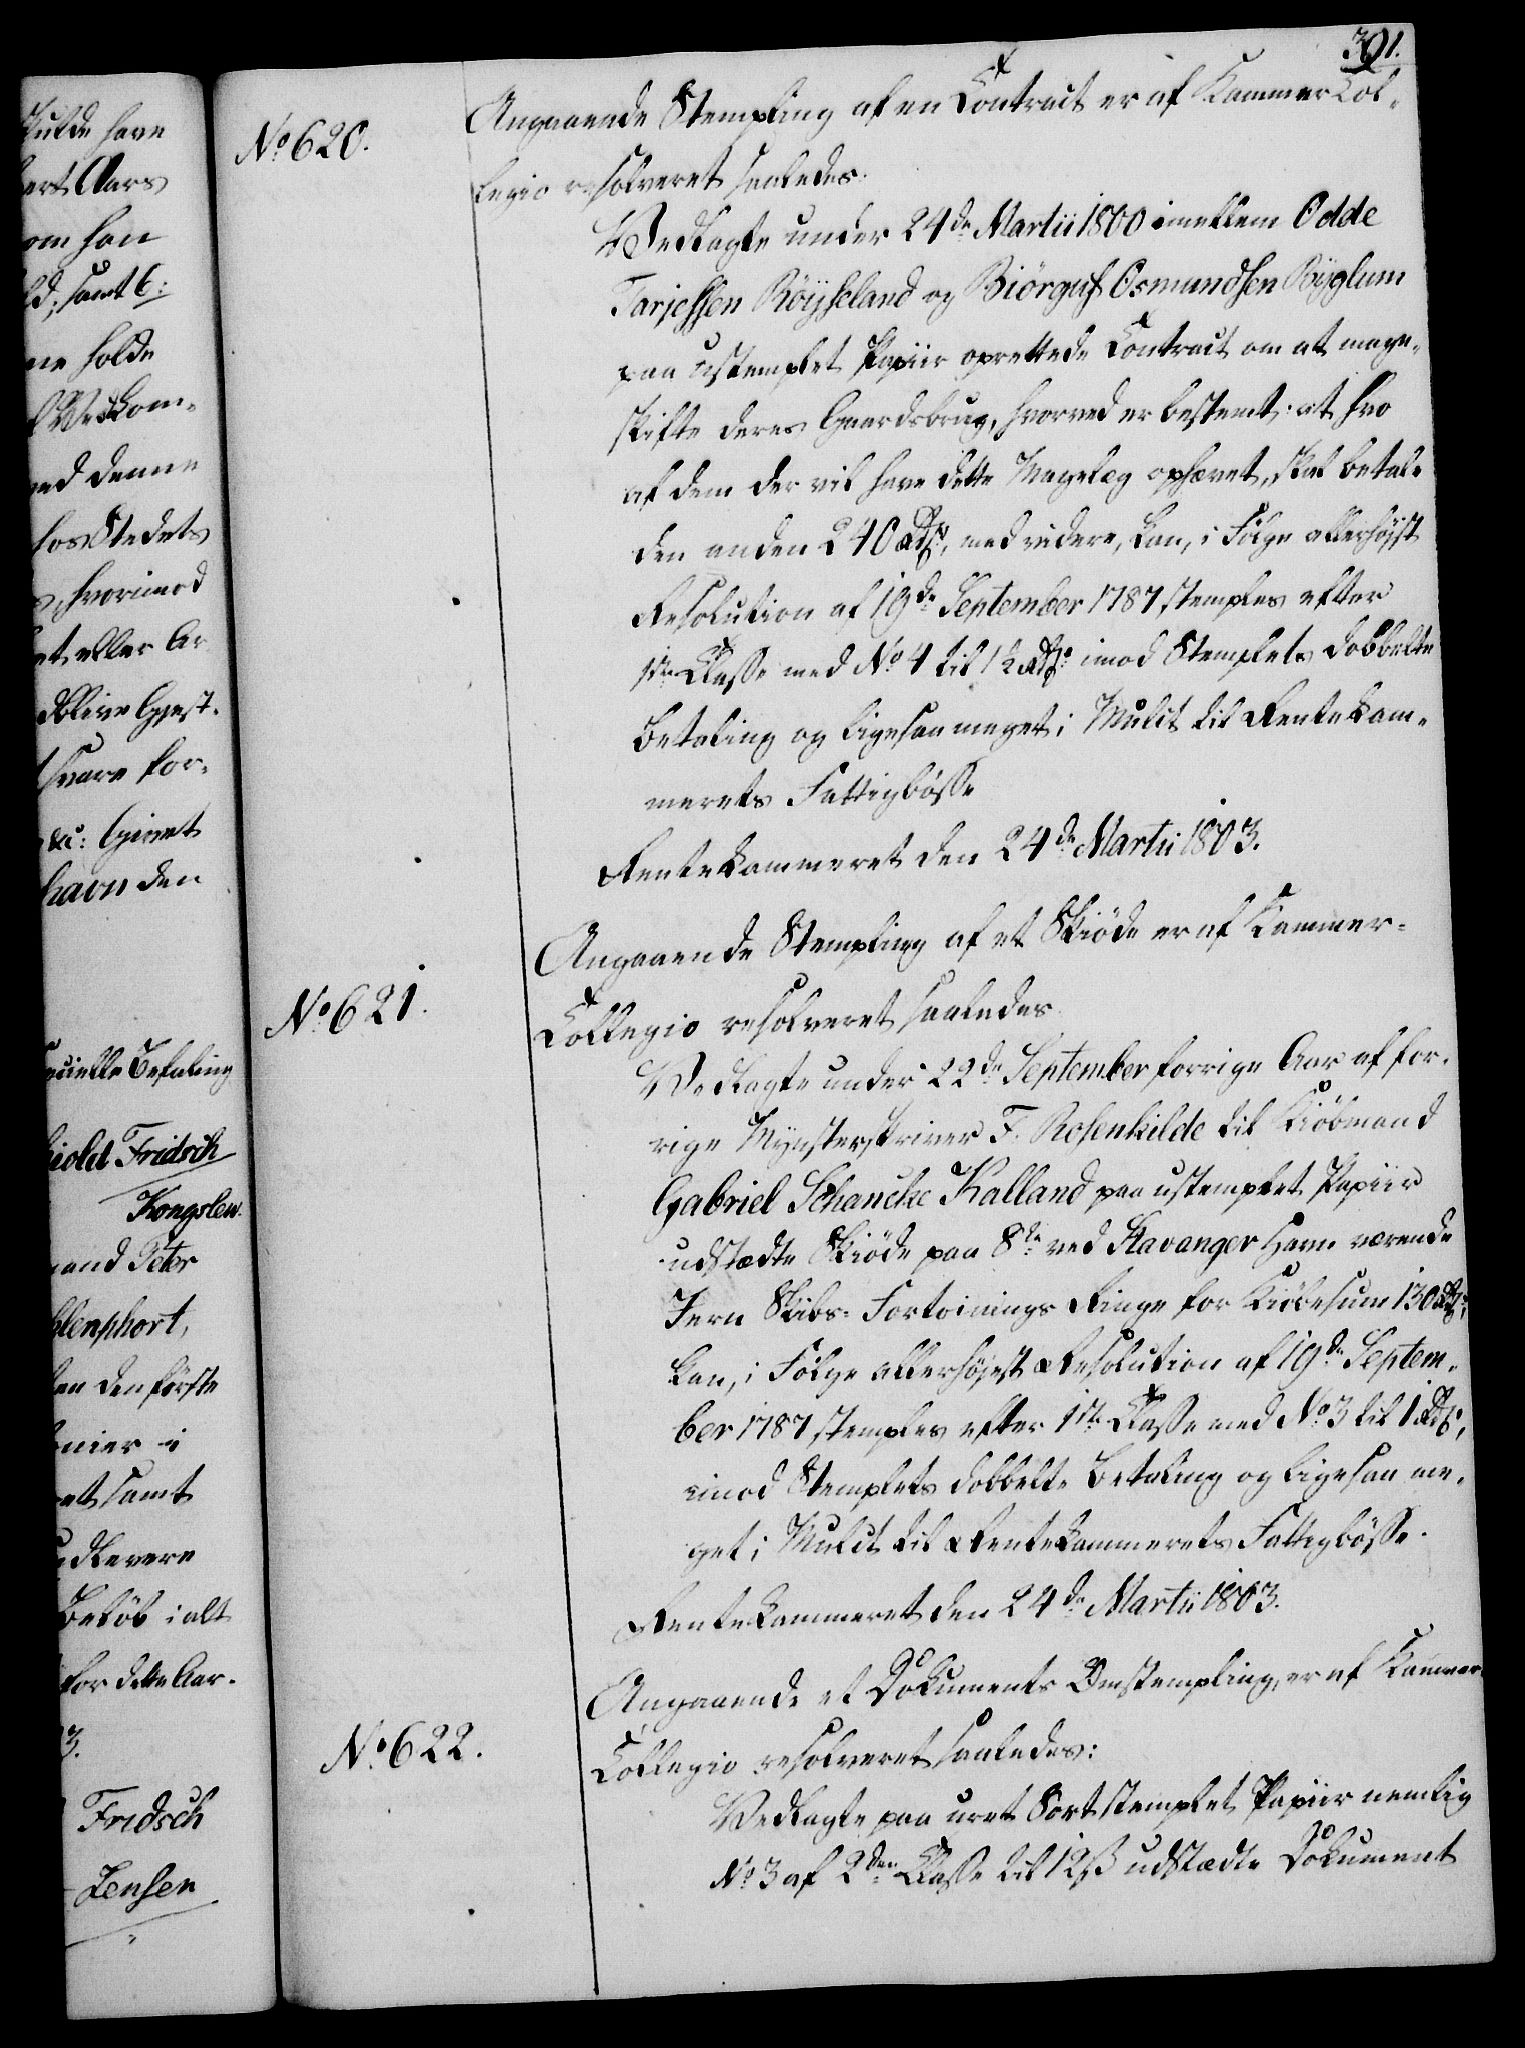 301.
No 620.
Angaaende Stempling af en Contract er af Kammer Col-
legio resolveret saaledes.
Vedlagte under 24de Martii 1800 imellem Odde
Tarjessen Röysseland og Biörguf Osmundsen Röyglum
paa ustemplet Papiir oprettede Contract om at mage-
skifte deres Gaardsbrug, hvorved er bestemt: at hvo
af dem der vil have dette Magelæg ophævet, skal betale
den anden 240 Rdr, med videre, kan, i Fölge allerhöjst
Resolution af 19de September 1787 stemples efter
1ste Classe med No 4 til 1½ Rdr: imod Stemplets dobbelte
Betaling og ligesaa meget i Mulct til Rentekam-
merets Fattigbösse
Rentekammeret den 24de Martii 1803.
No 621.
Angaaende Stempling af et Skiöde er af Kammer-
Collegio resolveret saaledes
Vedlagte under 22de September forrige Aar af for-
rige Mynsterskriver F. Rosenkilde til Kiöbmand
Gabriel Schancke Kalland paa ustemplet Papiir
udstædte Skiöde paa 8te ved Stavanger Havn værende
Jern Skibs-Fortoinings Ringe for Kiöbesum 130 Rdr,
kan, i Fölge allerhöjest Resolution af 19de Septem-
ber 1787 stemples efter 1ste Classe med No 3 til 1 Rdr,
imod Stemplets dobbelte Betaling og ligesaa me-
get i Mulct til Rentekammerets Fattigbösse.
Rentekammeret den 24de Martii 1803.
No 622.
Angaaende et Dokuments Omstempling, er af Kammer-
Collegio resolveret saaledes:
Vedlagte paa uret Sort stemplet Papiir nemlig
No 3 af 2den Classe til 12 ß udstædte Dokument
skulde have
hvert Aars
om han
samt 6:
holde
Vedkom-
ved denne
hos Stedets
hvorimod
eller Ar
blive Gjest-
svare for-
&c: Givet
havn den
specielle Befaling
Fridsch
Kongslew.
Peter
den förste
i
samt
udlevere
Belöb i alt
for dette Aar.
3.
Fridsch
Jensen